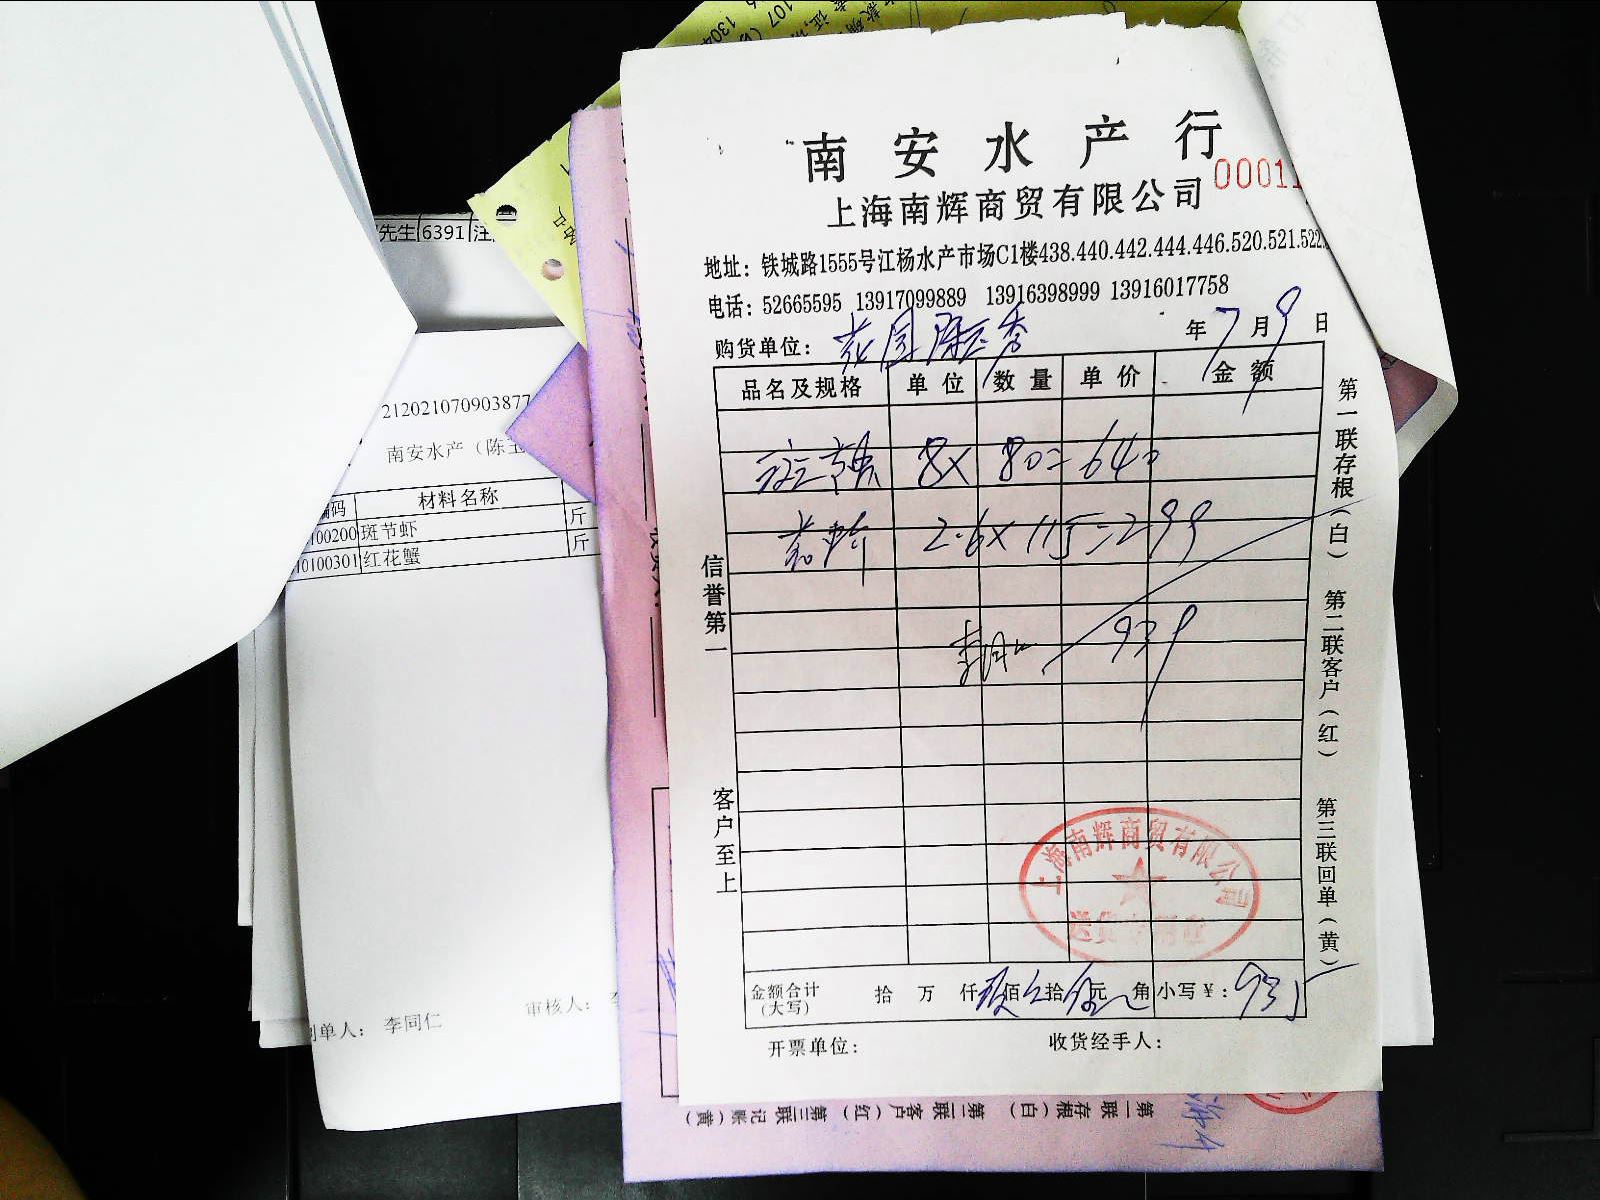 南安水产行
上海南辉商贸有限公司
00011
地址：铁城路1555号江杨水产市场C1楼438.440.442.444.446.520.521.522.
电话：52665595 13917099889 13916398999 13916017758
购货单位： 花园陈玉秀 年 7 月 9 日
品名及规格 单位 数量 单价 金额
斑节虾 8× 80=640
2.6×115=299
939
金额合计（大写） 拾 万 仟 玖佰 拾 元 角 小写￥：935
开票单位： 收货经手人：
第一联存根（白） 第二联客户（红） 第三联回单（黄）
信誉第一
客户至上
上海南辉商贸有限公司
先生 6391 注
212021070903877
南安水产（陈玉
编码 材料名称
100200 斑节虾 斤
10100301 红花蟹 斤
制单人： 李同仁
审核人：
第一联存根（白） 第二联客户（红） 第三联记账（黄）